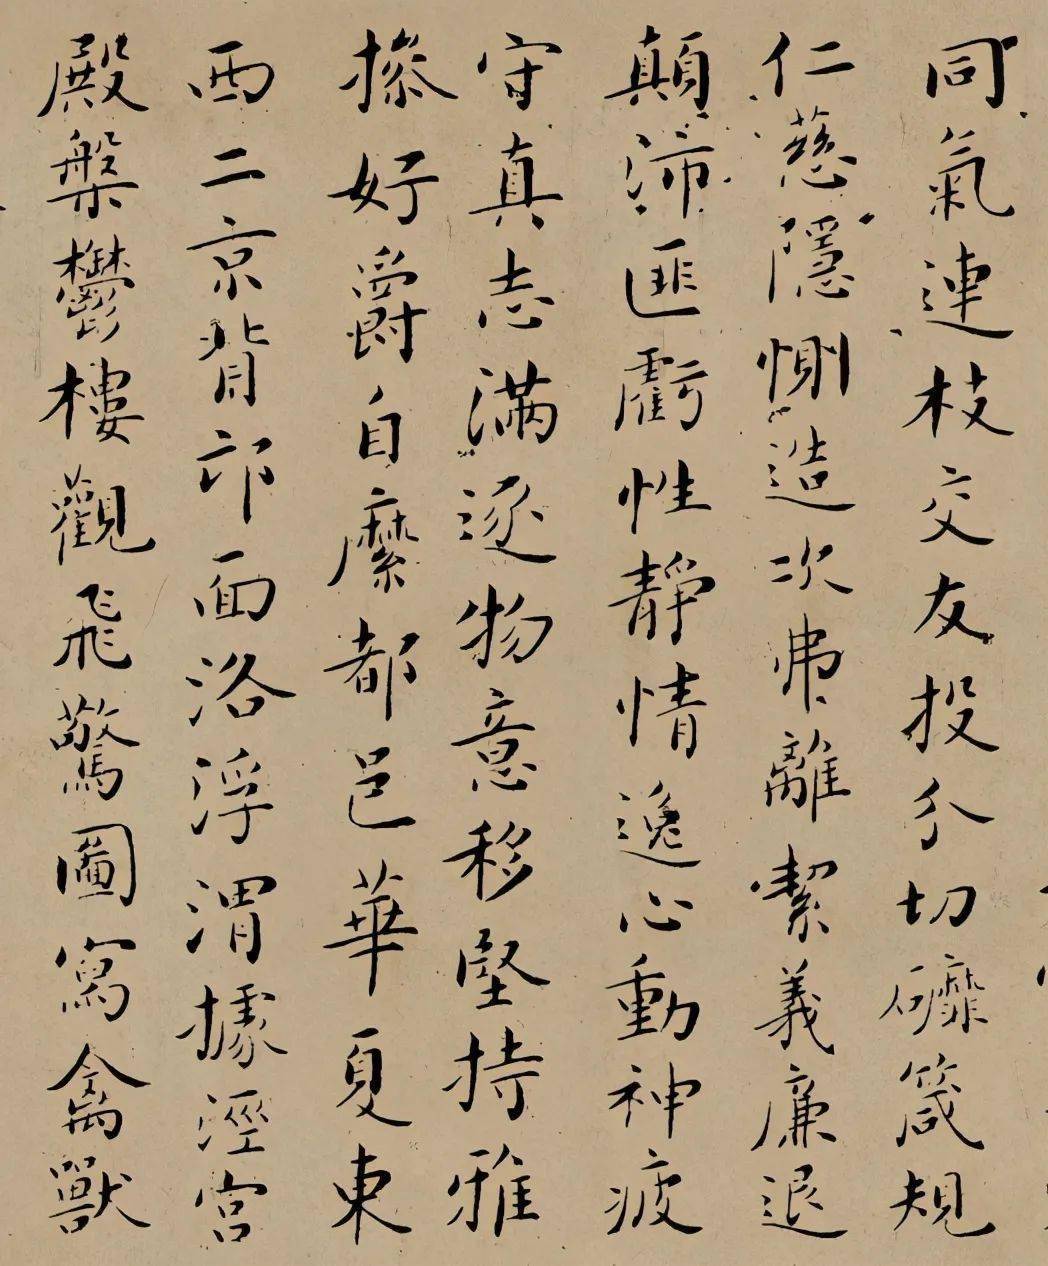 同氣連枝交友投分切磨箴規
仁慈隱惻造次弗離絜義廉退
顛沛匪虧性靜情逸心動神疲
守真志滿逐物意移堅持雅
操好爵自縻都邑華夏東
西二京背邙面洛浮渭據涇宮
殿槃鬱樓觀飛驚圖寫禽獸